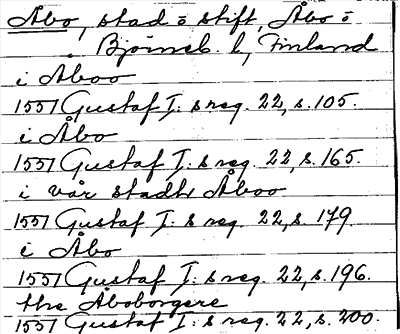 Åbo, stad o stift, Åbo o
Björneb. l, Finland
i Åboo
1557 Gustaf I:s reg. 22, s. 105.
i Åbo
1557 Gustaf I:s reg. 22, s. 165.
i vår stadh Åboo
1557 Gustaf I:s reg. 22, s. 179.
i Åbo
1557 Gustaf I:s reg. 22, s. 196.
the Åboborgere
1557 Gustaf I:s reg. 22, s. 200.